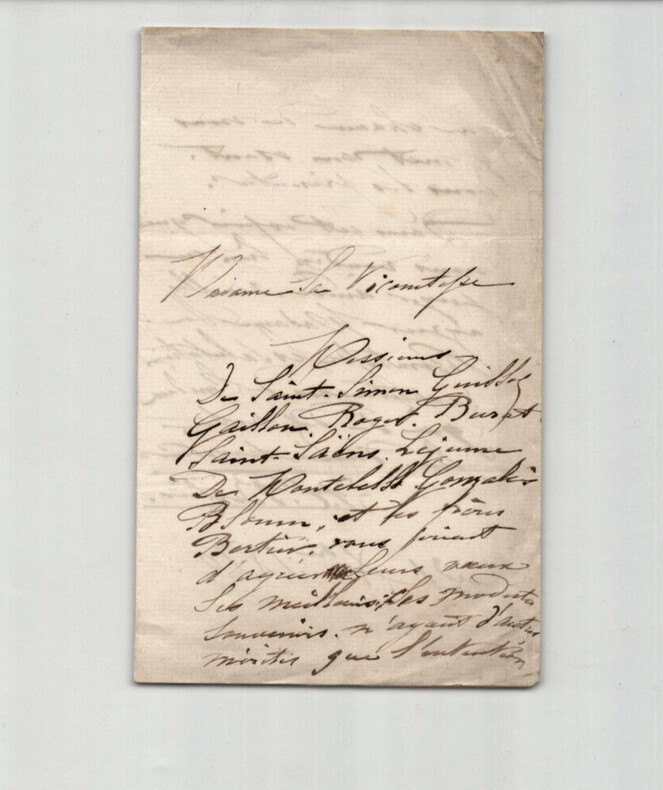 Madame La Vicomtesse
Messieurs
De Saint-Simon
Gaillon. Roger. Burat.
Saint-Saëns. Lejeune
De Montebello Gonzalès
et les frères
Bertier. vous prient
d'agréer leurs vœux
les meilleurs, les modestes
souvenirs. n'ayant d'autres
mérites que l'intention